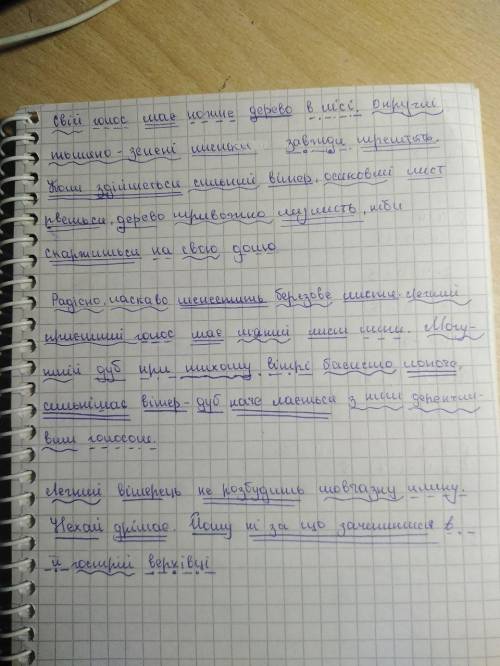 Свій голос має кожне дерево в лісі. Округлі
тьмяно-зелені листки завжди тремтять.
Коли здіймається сильний вітер, осиковий лист
рветься, дерево тривожно шумить, ніби
скаржиться на свою долю
Радісно, ласкаво шелестить березове листя. Легкий
приємний голос має ніжний лист липи. Могу-
тній дуб при тихому вітрі басисто лопоче,
сильнішає вітер - дуб наче лається з ним
вим голосом.
Легкий вітерець не розбудить мовчазну ялину.
Нехай дрімає. Йому ні за що зачепитися в
її гострій верхівці